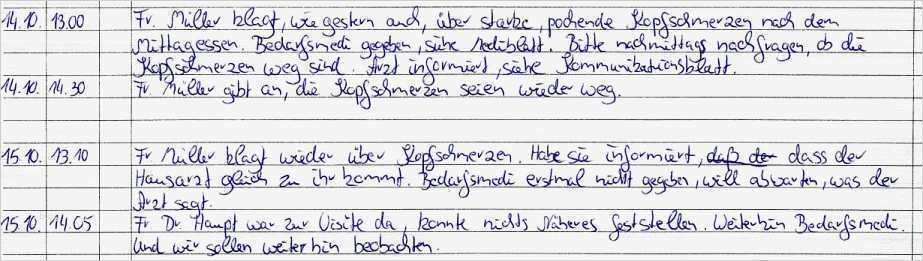 14.10. 13.00 Fr. Müller klagt, wie gestern auch, über starke, pochende Kopfschmerzen nach dem
Mittagessen. Bedarfsmedi gegeben, siehe Mediblatt. Bitte nachmittags nachfragen, ob die
Kopfschmerzen weg sind. Arzt informiert, siehe Kommunikationsblatt.
14.10. 14.30 Fr Müller gibt an, die Kopfschmerzen seien wieder weg.
15.10. 13.10 Fr Müller klagt wieder über Kopfschmerzen. Habe sie informiert, daß der dass der
Hausarzt gleich zu ihr kommt. Bedarfsmedi erstmal nicht gegeben, will abwarten, was der
Arzt sagt.
15.10. 14.05 Fr Dr. Haupt war zur Visite da, konnte nichts Näheres feststellen. Weiterhin Bedarfsmedi.
und wir sollen weiterhin beobachten.